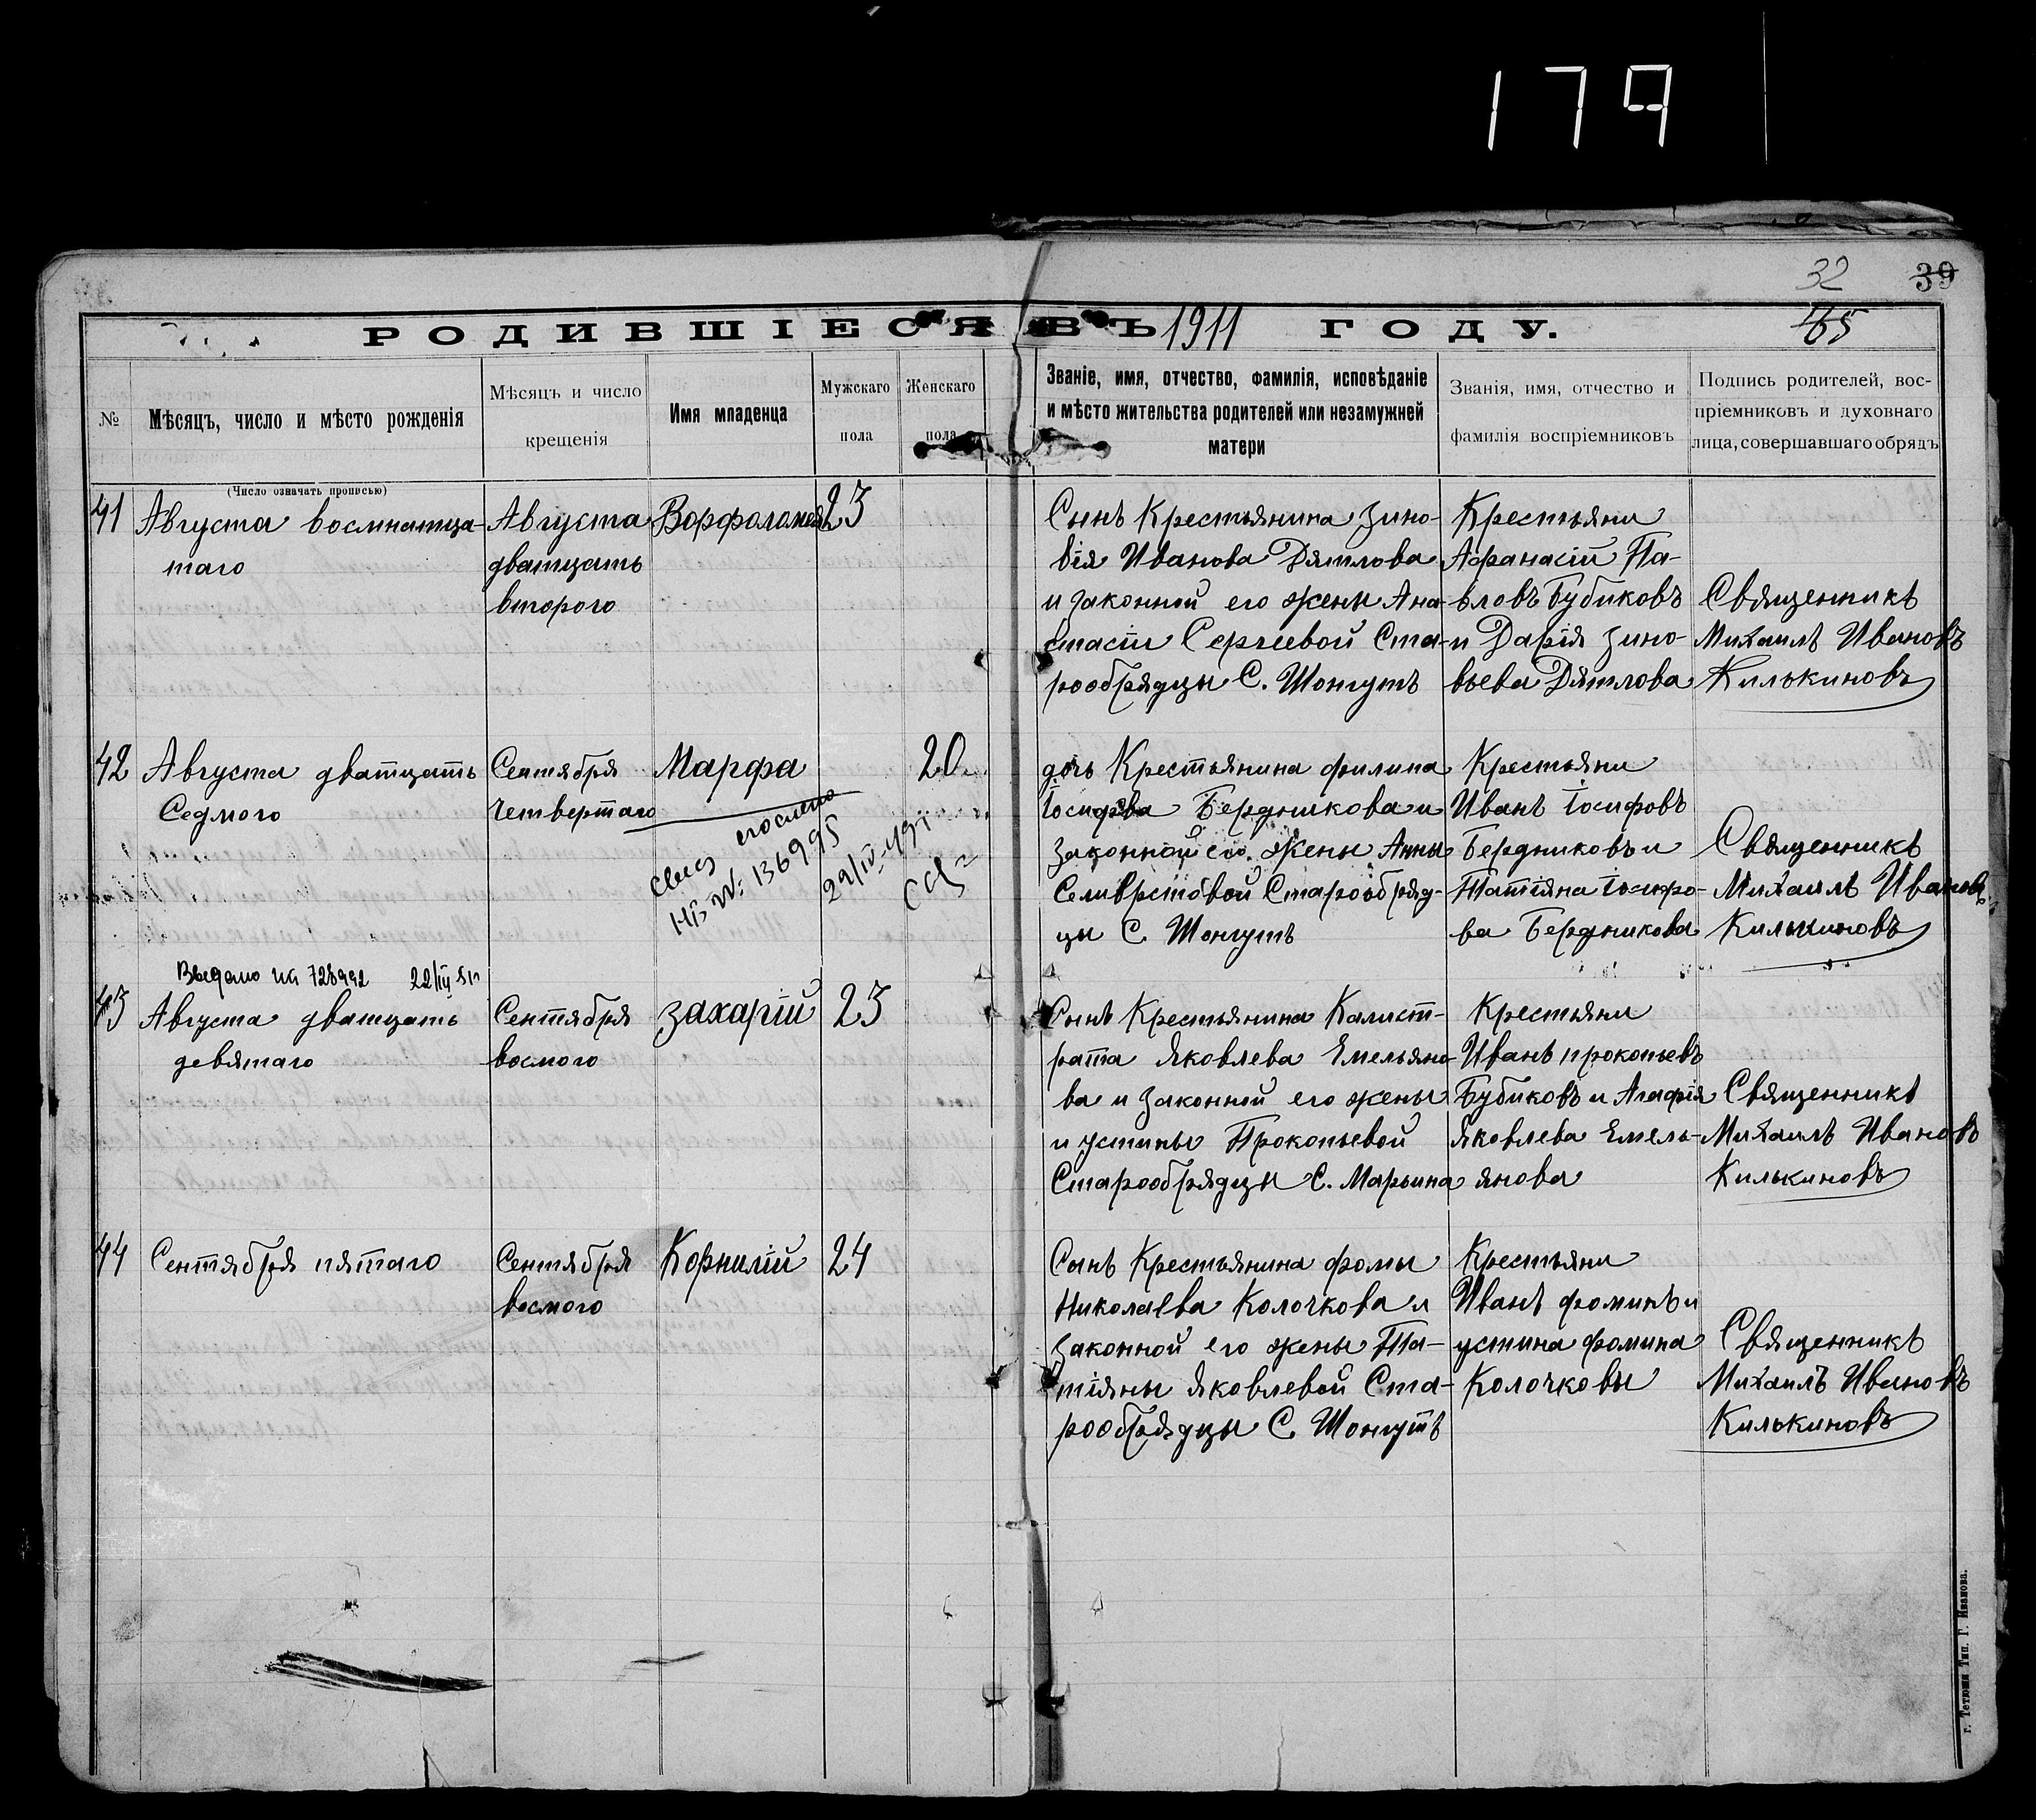 179
32
39
65
РОДИВШІЕСЯ ВЪ 1911 ГОДУ.
№
Мѣсяцъ, число и мѣсто рожденія
Мѣсяцъ и число
крещенія
Имя младенца
Мужскаго
пола
Женскаго
пола
Званіе, имя, отчество, фамилія, исповѣданіе
и мѣсто жительства родителей или незамужней
матери
Званія, имя, отчество и
фамилія воспріемниковъ
Подпись родителей, вос-
пріемниковъ и духовнаго
лица, совершавшаго обрядъ
(Число означать прописью)
41
Августа восмнатца-
таго
Августа
дватцать
второго
Ворфоломей
23
Сынъ Крестьянина Зино-
вія Иванова Дятлова
и законной его жены Ана-
стасіи Сергеевой Ста-
рообрядцы С. Шонгутъ
Крестьяни
Афанасій Па-
вловъ Бубиковъ
и Дарія Зино-
вьева Дятлова
Священникъ
Михаилъ Ивановъ
Килькиновъ
42
Августа дватцать
Седмого
Сентября
Четвертаго
Марфа
20
дочь Крестьянина филипа
Іосифова Бердникова и
Законной его жены Анны
Селиврстовой Старообряд-
цы С. Шонгутъ
Крестьяни
Иванъ Іосифовъ
Бердниковъ и
Татіяна Іосифо-
ва Бердникова
Священникъ
Михаилъ Ивановъ
Килькиновъ
№ 136995
Выдано на 728992
43
Августа дватцать
девятаго
Сентября
восмого
Захарій
23
Сынъ Крестьянина Калист-
рата Яковлева Емельяно-
ва и Законной его жены
иустины Прокопьевой
Старообрядцы С. Марьина
Крестьяни
Иванъ прокопьевъ
Бубиковъ и Агафія
Яковлева Емель-
янова
Священникъ
Михаилъ Ивановъ
Килькиновъ
44
Сентября пятаго
Сентября
восмого
Корнилій
24
Сынъ Крестьянина фомы
Николаева Колочкова и
Законной его жены Та-
тіяны Яковлевой Ста-
рообрядцы С. Шонгутъ
Крестьяни
Иванъ фоминъ и
устина фомина
Колочковы
Священникъ
Михаилъ Ивановъ
Килькиновъ
г. Тетюши Тип. Г. Иванова.